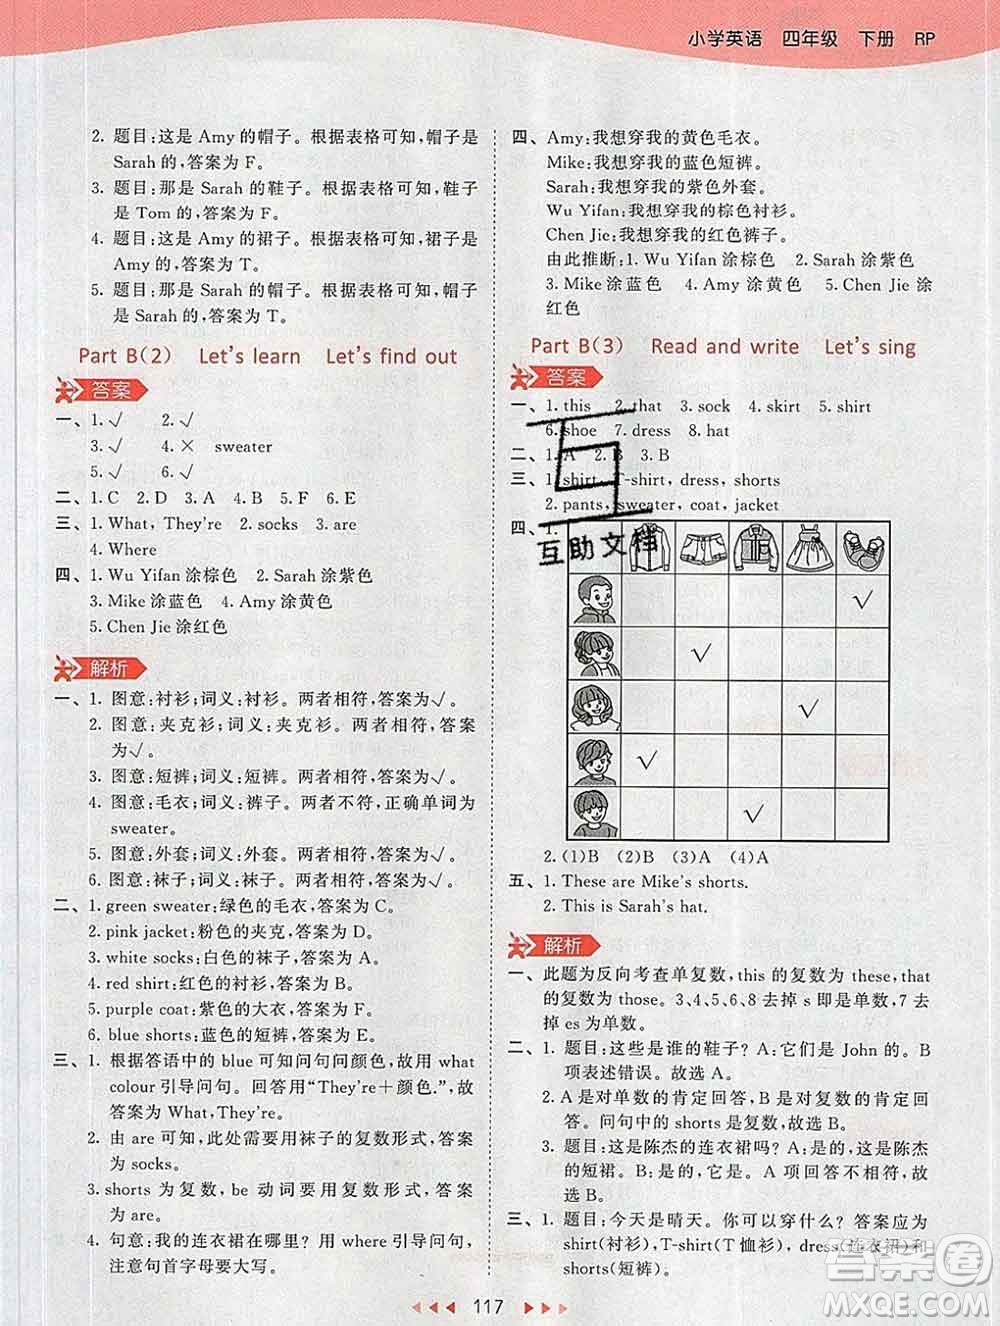 小学英语 四年级 下册 RP
2. 题目:这是 Amy 的帽子。根据表格可知,帽子是
Sarah 的,答案为 F。
3. 题目:那是 Sarah 的鞋子。根据表格可知,鞋子
是 Tom 的,答案为 F。
4. 题目:这是 Amy 的裙子。根据表格可知,裙子是
Amy 的,答案为 T。
5. 题目:那是 Sarah 的帽子。根据表格可知,帽子
是 Sarah 的,答案为 T。
Part B(2) Let's learn Let's find out
答案
一、1. √ 2. √
3. √ 4. × sweater
5. √ 6. √
二、1. C 2. D 3. A 4. B 5. F 6. E
三、1. What, They're 2. socks 3. are
4. Where
四、1. Wu Yifan 涂棕色 2. Sarah 涂紫色
3. Mike 涂蓝色 4. Amy 涂黄色
5. Chen Jie 涂红色
解析
一、1. 图意:衬衫;词义:衬衫。两者相符,答案为√。
2. 图意:夹克衫;词义:夹克衫。两者相符,答案
为√。
3. 图意:短裤;词义:短裤。两者相符,答案为√。
4. 图意:毛衣;词义:裤子。两者不符,正确单词为
sweater。
5. 图意:外套;词义:外套。两者相符,答案为√。
6. 图意:袜子;词义:袜子。两者相符,答案为√。
二、1. green sweater:绿色的毛衣,答案为 C。
2. pink jacket:粉色的夹克,答案为 D。
3. white socks:白色的袜子,答案为 A。
4. red shirt:红色的衬衫,答案为 B。
5. purple coat:紫色的大衣,答案为 F。
6. blue shorts:蓝色的短裤,答案为 E。
三、1. 根据答语中的 blue 可知问句问颜色,故用 what
colour 引导问句。回答用“They're+颜色.”,故
答案为 What, They're。
2. 由 are 可知,此处需要用袜子的复数形式,答案
为 socks。
3. shorts 为复数,be 动词要用复数形式,答案
为 are。
4. 句意:我的连衣裙在哪里? 用 where 引导问句,
注意句首字母要大写。
四、Amy:我想穿我的黄色毛衣。
Mike:我想穿我的蓝色短裤。
Sarah:我想穿我的紫色外套。
Wu Yifan:我想穿我的棕色衬衫。
Chen Jie:我想穿我的红色裤子。
由此推断:1. Wu Yifan 涂棕色 2. Sarah 涂紫色
3. Mike 涂蓝色 4. Amy 涂黄色 5. Chen Jie 涂
红色
Part B(3) Read and write Let's sing
答案
一、1. this 2. that 3. sock 4. skirt 5. shirt
6. shoe 7. dress 8. hat
二、1. A 2. B 3. B
三、1. shirt, T-shirt, dress, shorts
2. pants, sweater, coat, jacket
四、1.
互助文档
√
√
√
√
√
2. (1)B (2)B (3)A (4)A
五、1. These are Mike's shorts.
2. This is Sarah's hat.
解析
一、此题为反向考查单复数,this 的复数为 these,that
的复数为 those。3、4、5、6、8 去掉 s 即是单数,7 去
掉 es 为单数。
二、1. 题目:这些是谁的鞋子? A:它们是 John 的。B
项表述错误。故选 A。
2. A 是对单数的肯定回答,B 是对复数的肯定回
答。问句中的 shorts 是复数,故选 B。
3. 题目:这是陈杰的连衣裙吗? A:是的,这是陈杰
的短裙。B:是的,这是。A 项回答不相符。故
选 B。
三、1. 题目:今天是晴天。你可以穿什么? 答案应为
shirt(衬衫),T-shirt(T 恤衫),dress(连衣裙)和
shorts(短裤)。
117
答案圈
MXQE.COM